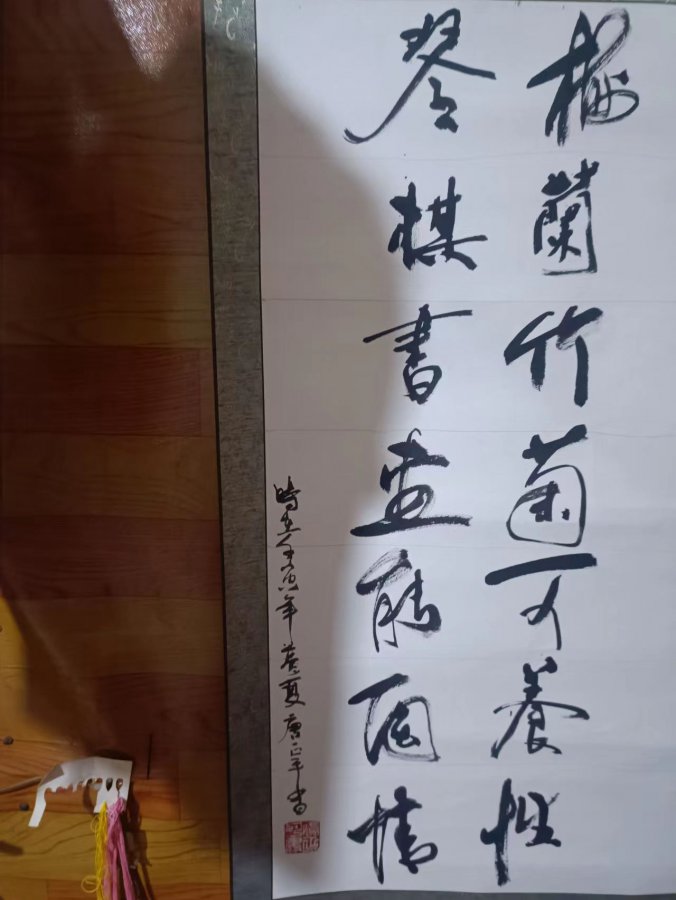 梅蘭竹菊可養性
琴棋書畫能陶情
時在壬寅年暮夏唐書